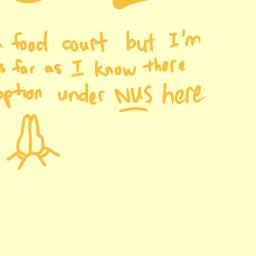 food court but I'm
far as I know there
option under NUS here